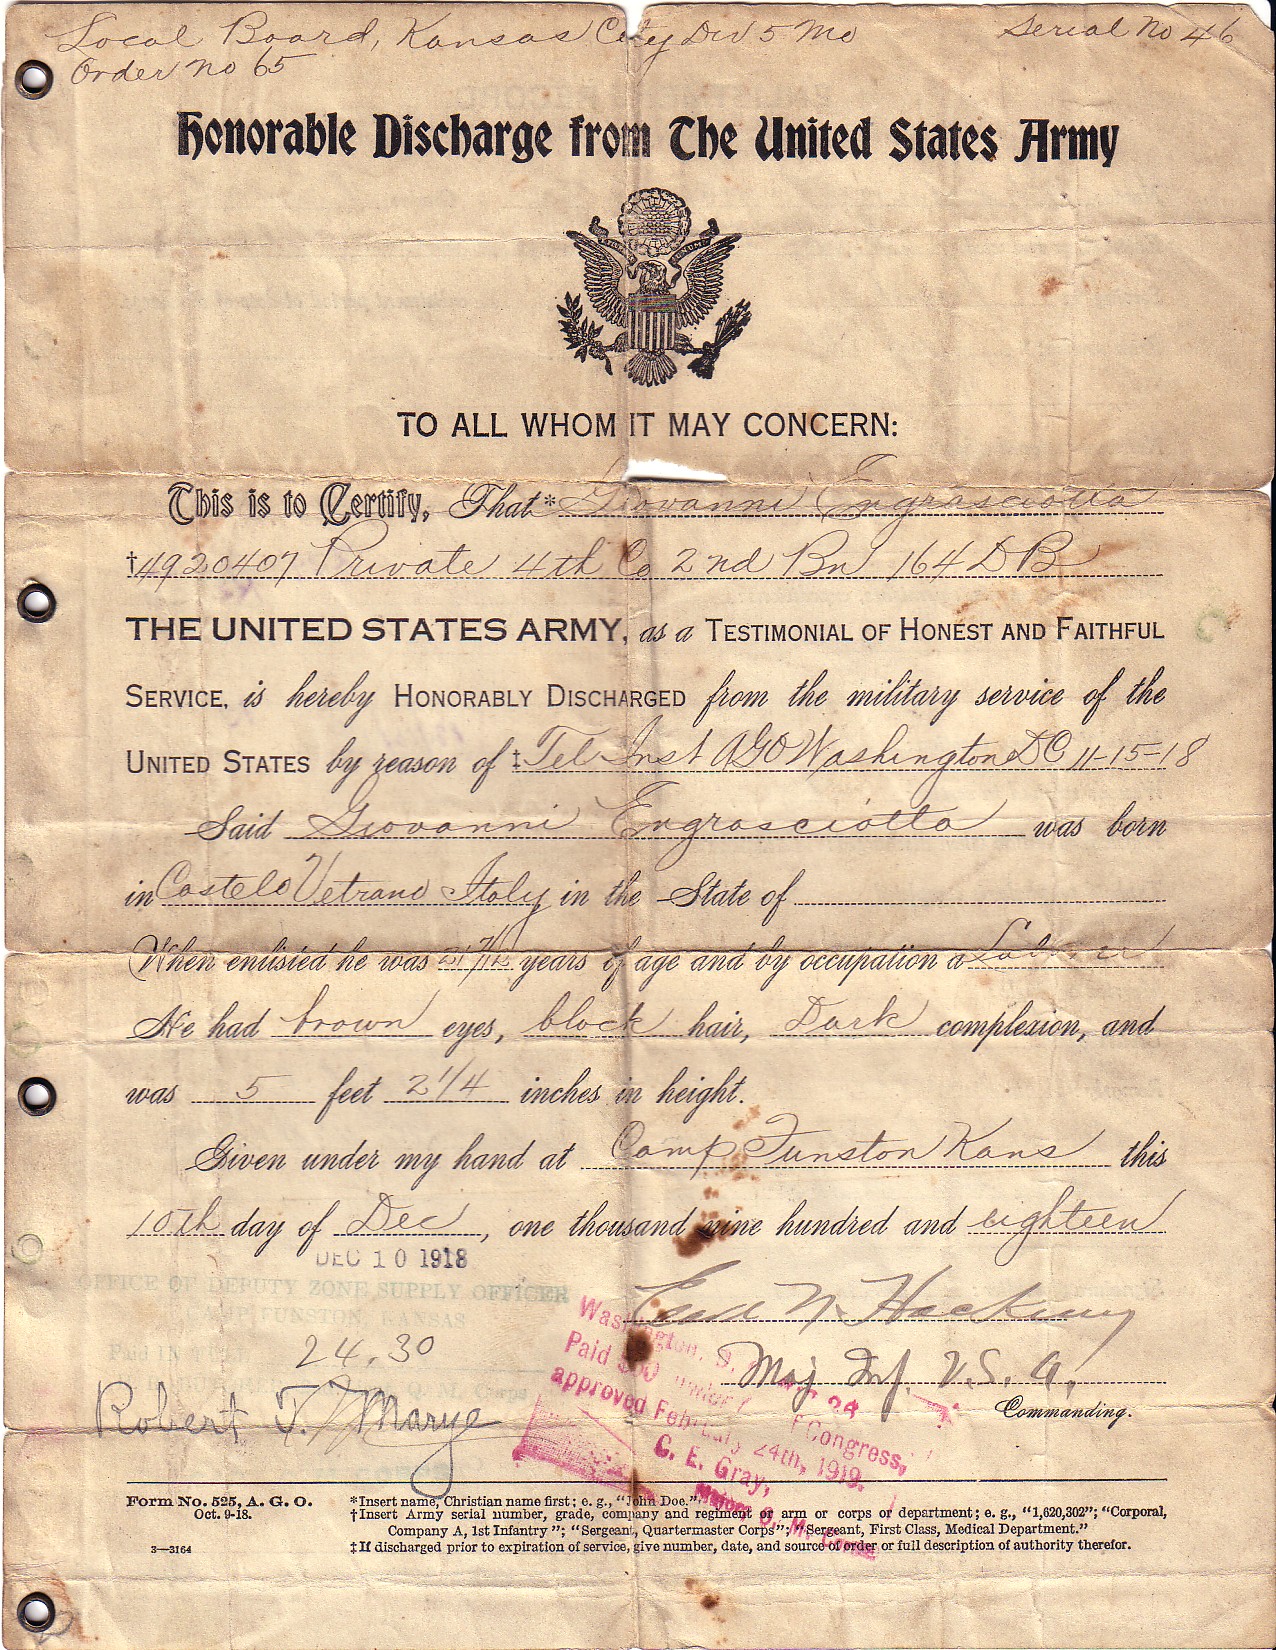 Local Board, Kansas City Div 5 Mo Serial No 46
Order no 65
Honorable Discharge from The United States Army
TO ALL WHOM IT MAY CONCERN:
This is to Certify, That* Giovanni Engrasciotta
†4920407 Private 4th Co 2nd Bn 164 D B
THE UNITED STATES ARMY, as a TESTIMONIAL OF HONEST AND FAITHFUL
SERVICE, is hereby HONORABLY DISCHARGED from the military service of the
UNITED STATES by reason of ‡ Tel Inst AGO Washington DC 11-15-18
Said Giovanni Engrasciotta was born
in Castelo Vetrano Italy in the State of
When enlisted he was 21 7/12 years of age and by occupation a Laborer
He had brown eyes, black hair, Dark complexion, and
was 5 feet 2 1/4 inches in height.
Given under my hand at Camp Funston Kans this
10th day of Dec, one thousand nine hundred and eighteen
DEC 10 1918
OFFICE OF DEPUTY ZONE SUPPLY OFFICER
CAMP FUNSTON, KANSAS
24.30
Robert J. Marye
Maj Inf. U.S.A.
Commanding.
Washington, D.
Paid $60 under of Congress,
approved February 24th, 1919.
C. E. Gray,
Major, Q. M. Corps
Form No. 525, A. G. O.
Oct. 9-18.
3—3164
*Insert name, Christian name first; e. g., "John Doe."
†Insert Army serial number, grade, company and regiment or arm or corps or department; e. g., "1,620,302"; "Corporal,
Company A, 1st Infantry"; "Sergeant, Quartermaster Corps"; "Sergeant, First Class, Medical Department."
‡If discharged prior to expiration of service, give number, date, and source of order or full description of authority therefor.